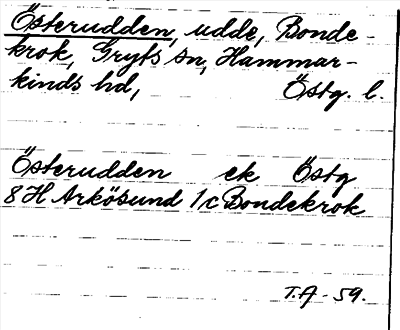 Österudden, udde, Bonde-
krok, Gryts sn, Hammar-
kinds hd, Östg. l.
Österudden ek Östg
8 H Arkösund 1 c Bondekrok
T.A - 59.